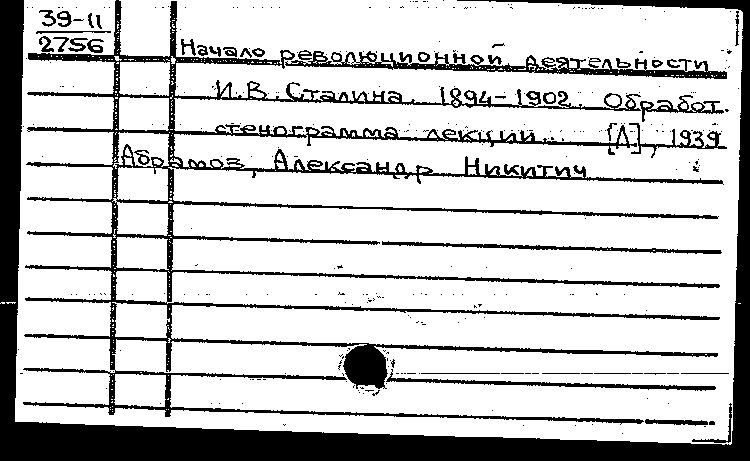 39-11
2756
Начало революционной деятельности
И.В. Сталина. 1894-1902. Обработ.
стенограмма лекции... [Л.], 1939
Абрамов, Александр Никитич